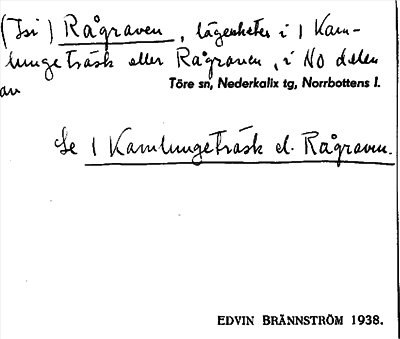 (Isi) Rågraven, lägenheter i 1 Kam-
lunge träsk eller Rågraven, i NO delen
av
Töre sn, Nederkalix tg, Norrbottens l.
Se 1 Kamlungeträsk el. Rågraven.
EDVIN BRÄNNSTRÖM 1938.